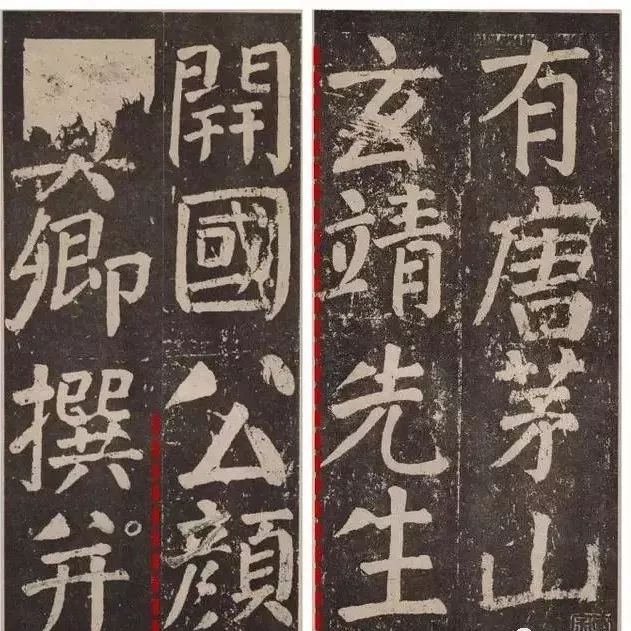 有唐茅山
玄靖先生
開國公顏
真卿撰并